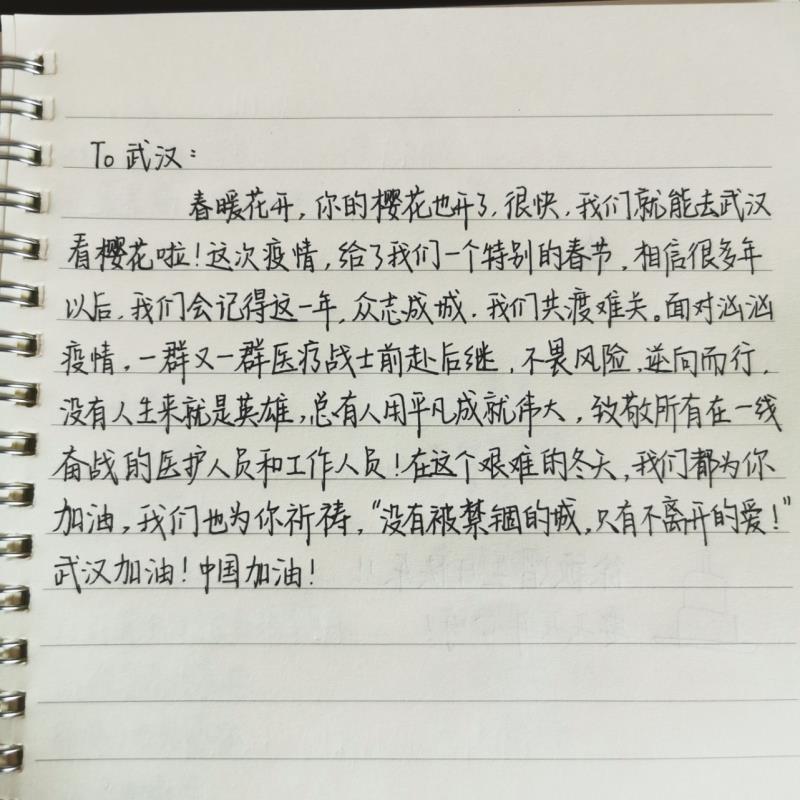 To 武汉：
春暖花开，你的樱花也开了，很快，我们就能去武汉
看樱花啦！这次疫情，给了我们一个特别的春节，相信很多年
以后，我们会记得这一年，众志成城，我们共渡难关。面对汹汹
疫情，一群又一群医疗战士前赴后继，不畏风险，逆向而行，
没有人生来就是英雄，总有人用平凡成就伟大，致敬所有在一线
奋战的医护人员和工作人员！在这个艰难的冬天，我们都为你
加油，我们也为你祈祷，“没有被禁锢的城，只有不离开的爱！”
武汉加油！中国加油！